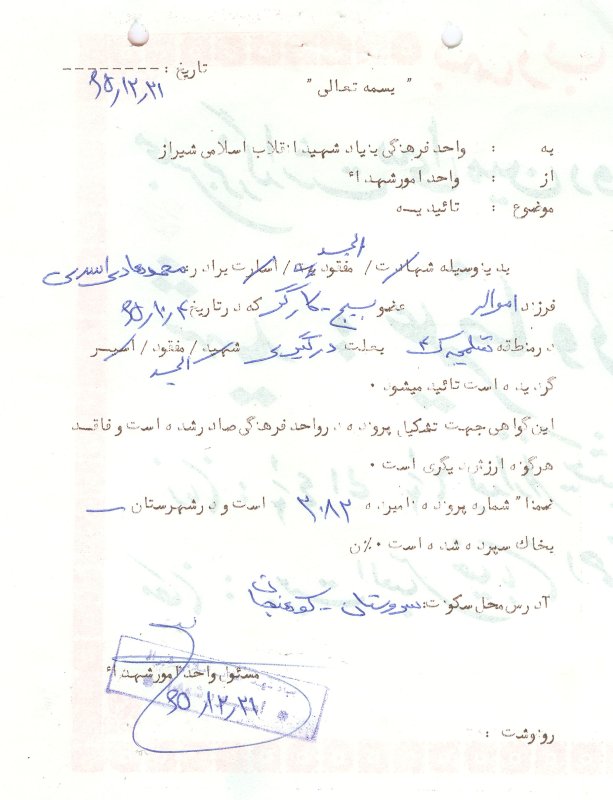 تاریخ : ---------
۶۵/۱۲/۲۱
" بسمه تعالی "
به : واحد فرهنگی بنیاد شهید انقلاب اسلامی شیراز
از : واحد امور شهداء
موضوع : تائیدیه
بدینوسیله شهادت / مفقودیت / اسارت برادر: محمدهادی اسدی
الجسد
فرزند عضو بسیج - کارگر که در تاریخ ۶۵/۱۰/۴
در منطقه شلمچه ک ۴ بعلت درگیری شهید / مفقود / اسیر
الجسد
گردیده است تائید میشود ۰
این گواهی جهت تشکیل پرونده در واحد فرهنگی صادر شده است و فاقد
هرگونه ارزش دیگری است ۰
ضمنا" شماره پرونده نامبرده ۳۰۸۳ است و در شهرستان ــ
بخاک سپرده شده است ۰٪ن
آدرس محل سکونت: سروستان - کوهنجان
مسئول واحد امور شهداء
۶۵/۱۲/۲۱
رونوشت :